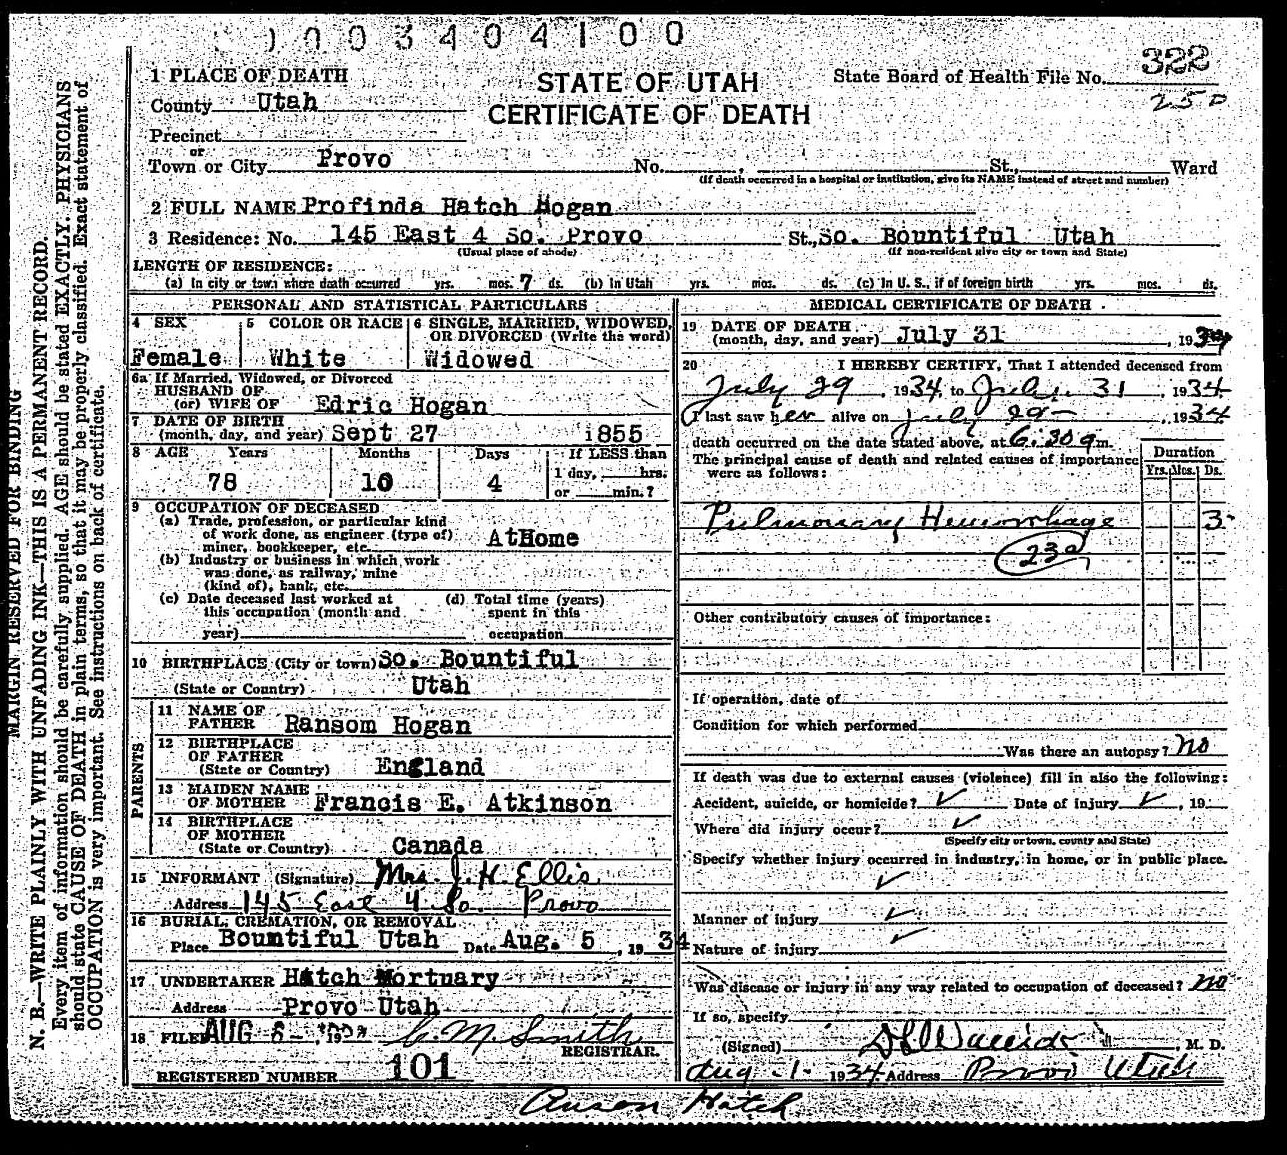 1003404100
322
250
1 PLACE OF DEATH
STATE OF UTAH
CERTIFICATE OF DEATH
State Board of Health File No.
County Utah
Precinct
or
Town or City Provo No. , St., Ward
(If death occurred in a hospital or institution, give its NAME instead of street and number)
2 FULL NAME Profinda Hatch Hogan
3 Residence: No. 145 East 4 So. Provo St., So. Bountiful Utah
(Usual place of abode) (If non-resident give city or town and State)
LENGTH OF RESIDENCE:
(a) In city or town where death occurred yrs. mos. 7 ds. (b) In Utah yrs. mos. ds. (c) In U. S., if of foreign birth yrs. mos. ds.
PERSONAL AND STATISTICAL PARTICULARS
4 SEX 5 COLOR OR RACE 6 SINGLE, MARRIED, WIDOWED, OR DIVORCED (Write the word)
Female White Widowed
6a If Married, Widowed, or Divorced
HUSBAND OF
(or) WIFE OF Edric Hogan
7 DATE OF BIRTH
(month, day, and year) Sept 27 1855
8 AGE Years Months Days If LESS than
78 10 4 1 day, hrs.
or min.?
9 OCCUPATION OF DECEASED
(a) Trade, profession, or particular kind
of work done, as engineer (type of)
miner, bookkeeper, etc. AtHome
(b) Industry or business in which work
was done, as railway, mine
(kind of), bank, etc.
(c) Date deceased last worked at (d) Total time (years)
this occupation (month and spent in this
year) occupation
10 BIRTHPLACE (City or town) So. Bountiful
(State or Country) Utah
PARENTS
11 NAME OF
FATHER Ransom Hogan
12 BIRTHPLACE
OF FATHER
(State or Country) England
13 MAIDEN NAME
OF MOTHER Francis E. Atkinson
14 BIRTHPLACE
OF MOTHER
(State or Country) Canada
15 INFORMANT (Signature) Mrs. J. H. Ellis
Address 145 East 4 So. Provo
16 BURIAL, CREMATION, OR REMOVAL
Place Bountiful Utah Date Aug. 5, 1934
17 UNDERTAKER Hatch Mortuary
Address Provo Utah
18 FILED AUG 6 - , 19 C. M. Smith
REGISTRAR.
REGISTERED NUMBER 101
MEDICAL CERTIFICATE OF DEATH
19 DATE OF DEATH
(month, day, and year) July 31, 1934
20 I HEREBY CERTIFY, That I attended deceased from
July 29, 1934, to July 31 1934
I last saw her alive on July 29-, 1934
death occurred on the date stated above, at 6:30 a m.
The principal cause of death and related causes of importance
were as follows:
Duration
Yrs. Mos. Ds.
Pulmonary Hemorrhage 3-
23a
Other contributory causes of importance:
If operation, date of
Condition for which performed
Was there an autopsy? no
If death was due to external causes (violence) fill in also the following:
Accident, suicide, or homicide? ✓ Date of injury ✓, 19
Where did injury occur? ✓
(Specify city or town, county and State)
Specify whether injury occurred in industry, in home, or in public place.
✓
Manner of injury ✓
Nature of injury ✓
Was disease or injury in any way related to occupation of deceased? no
If so, specify
(Signed) M. D.
Aug -1- 1934 Address Provo Utah
Anson Hatch
MARGIN RESERVED FOR BINDING
N. B.—WRITE PLAINLY WITH UNFADING INK—THIS IS A PERMANENT RECORD.
Every item of information should be carefully supplied. AGE should be stated EXACTLY. PHYSICIANS
should state CAUSE OF DEATH in plain terms, so that it may be properly classified. Exact statement of
OCCUPATION is very important. See instructions on back of certificate.